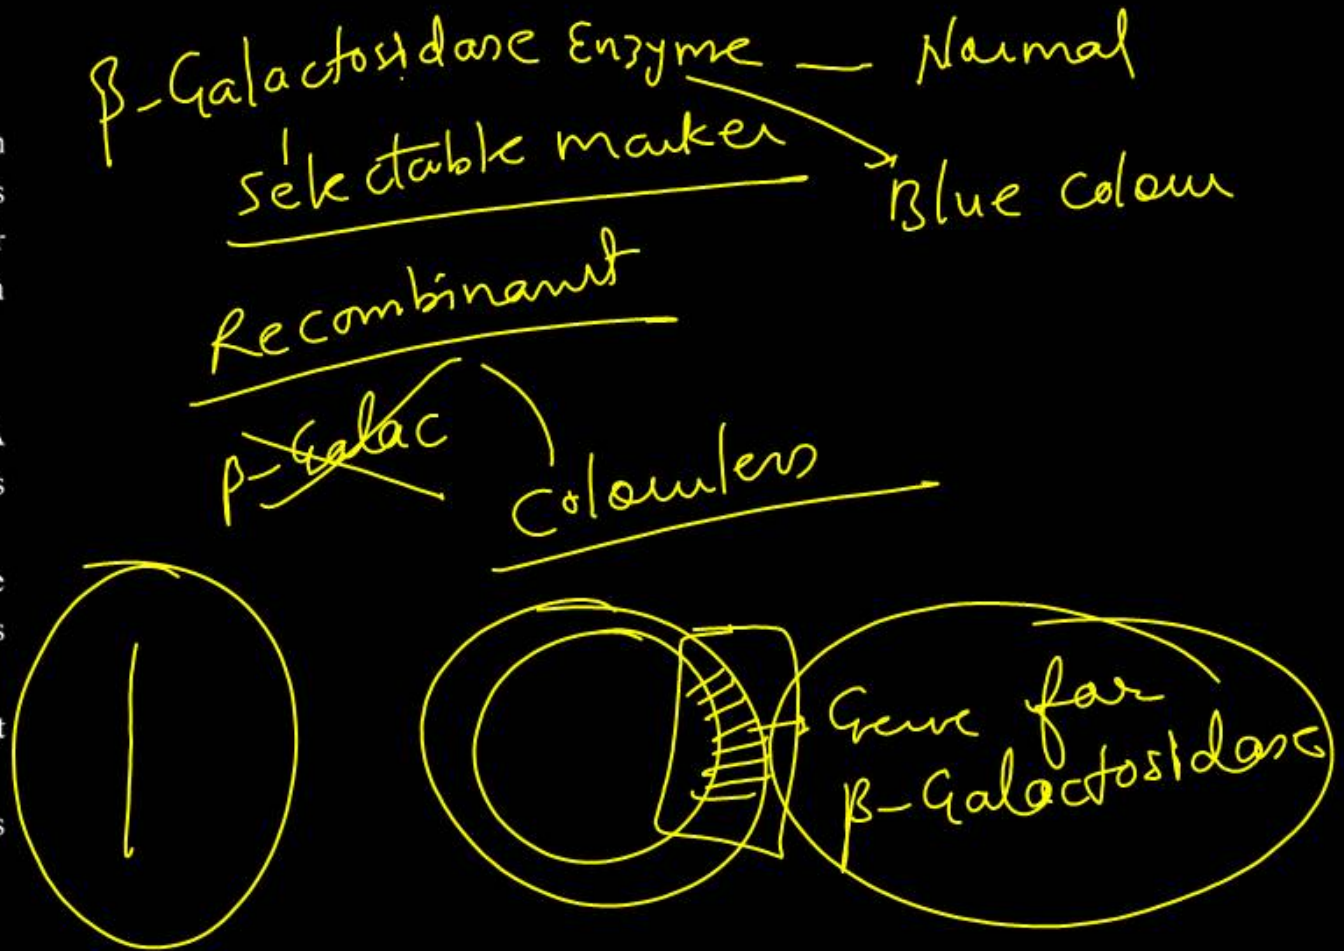 β-Galactosidase Enzyme — Normal
Selectable marker
Blue colour
Recombinant
β-Galac
Colourless
Gene for
β-Galactosidase